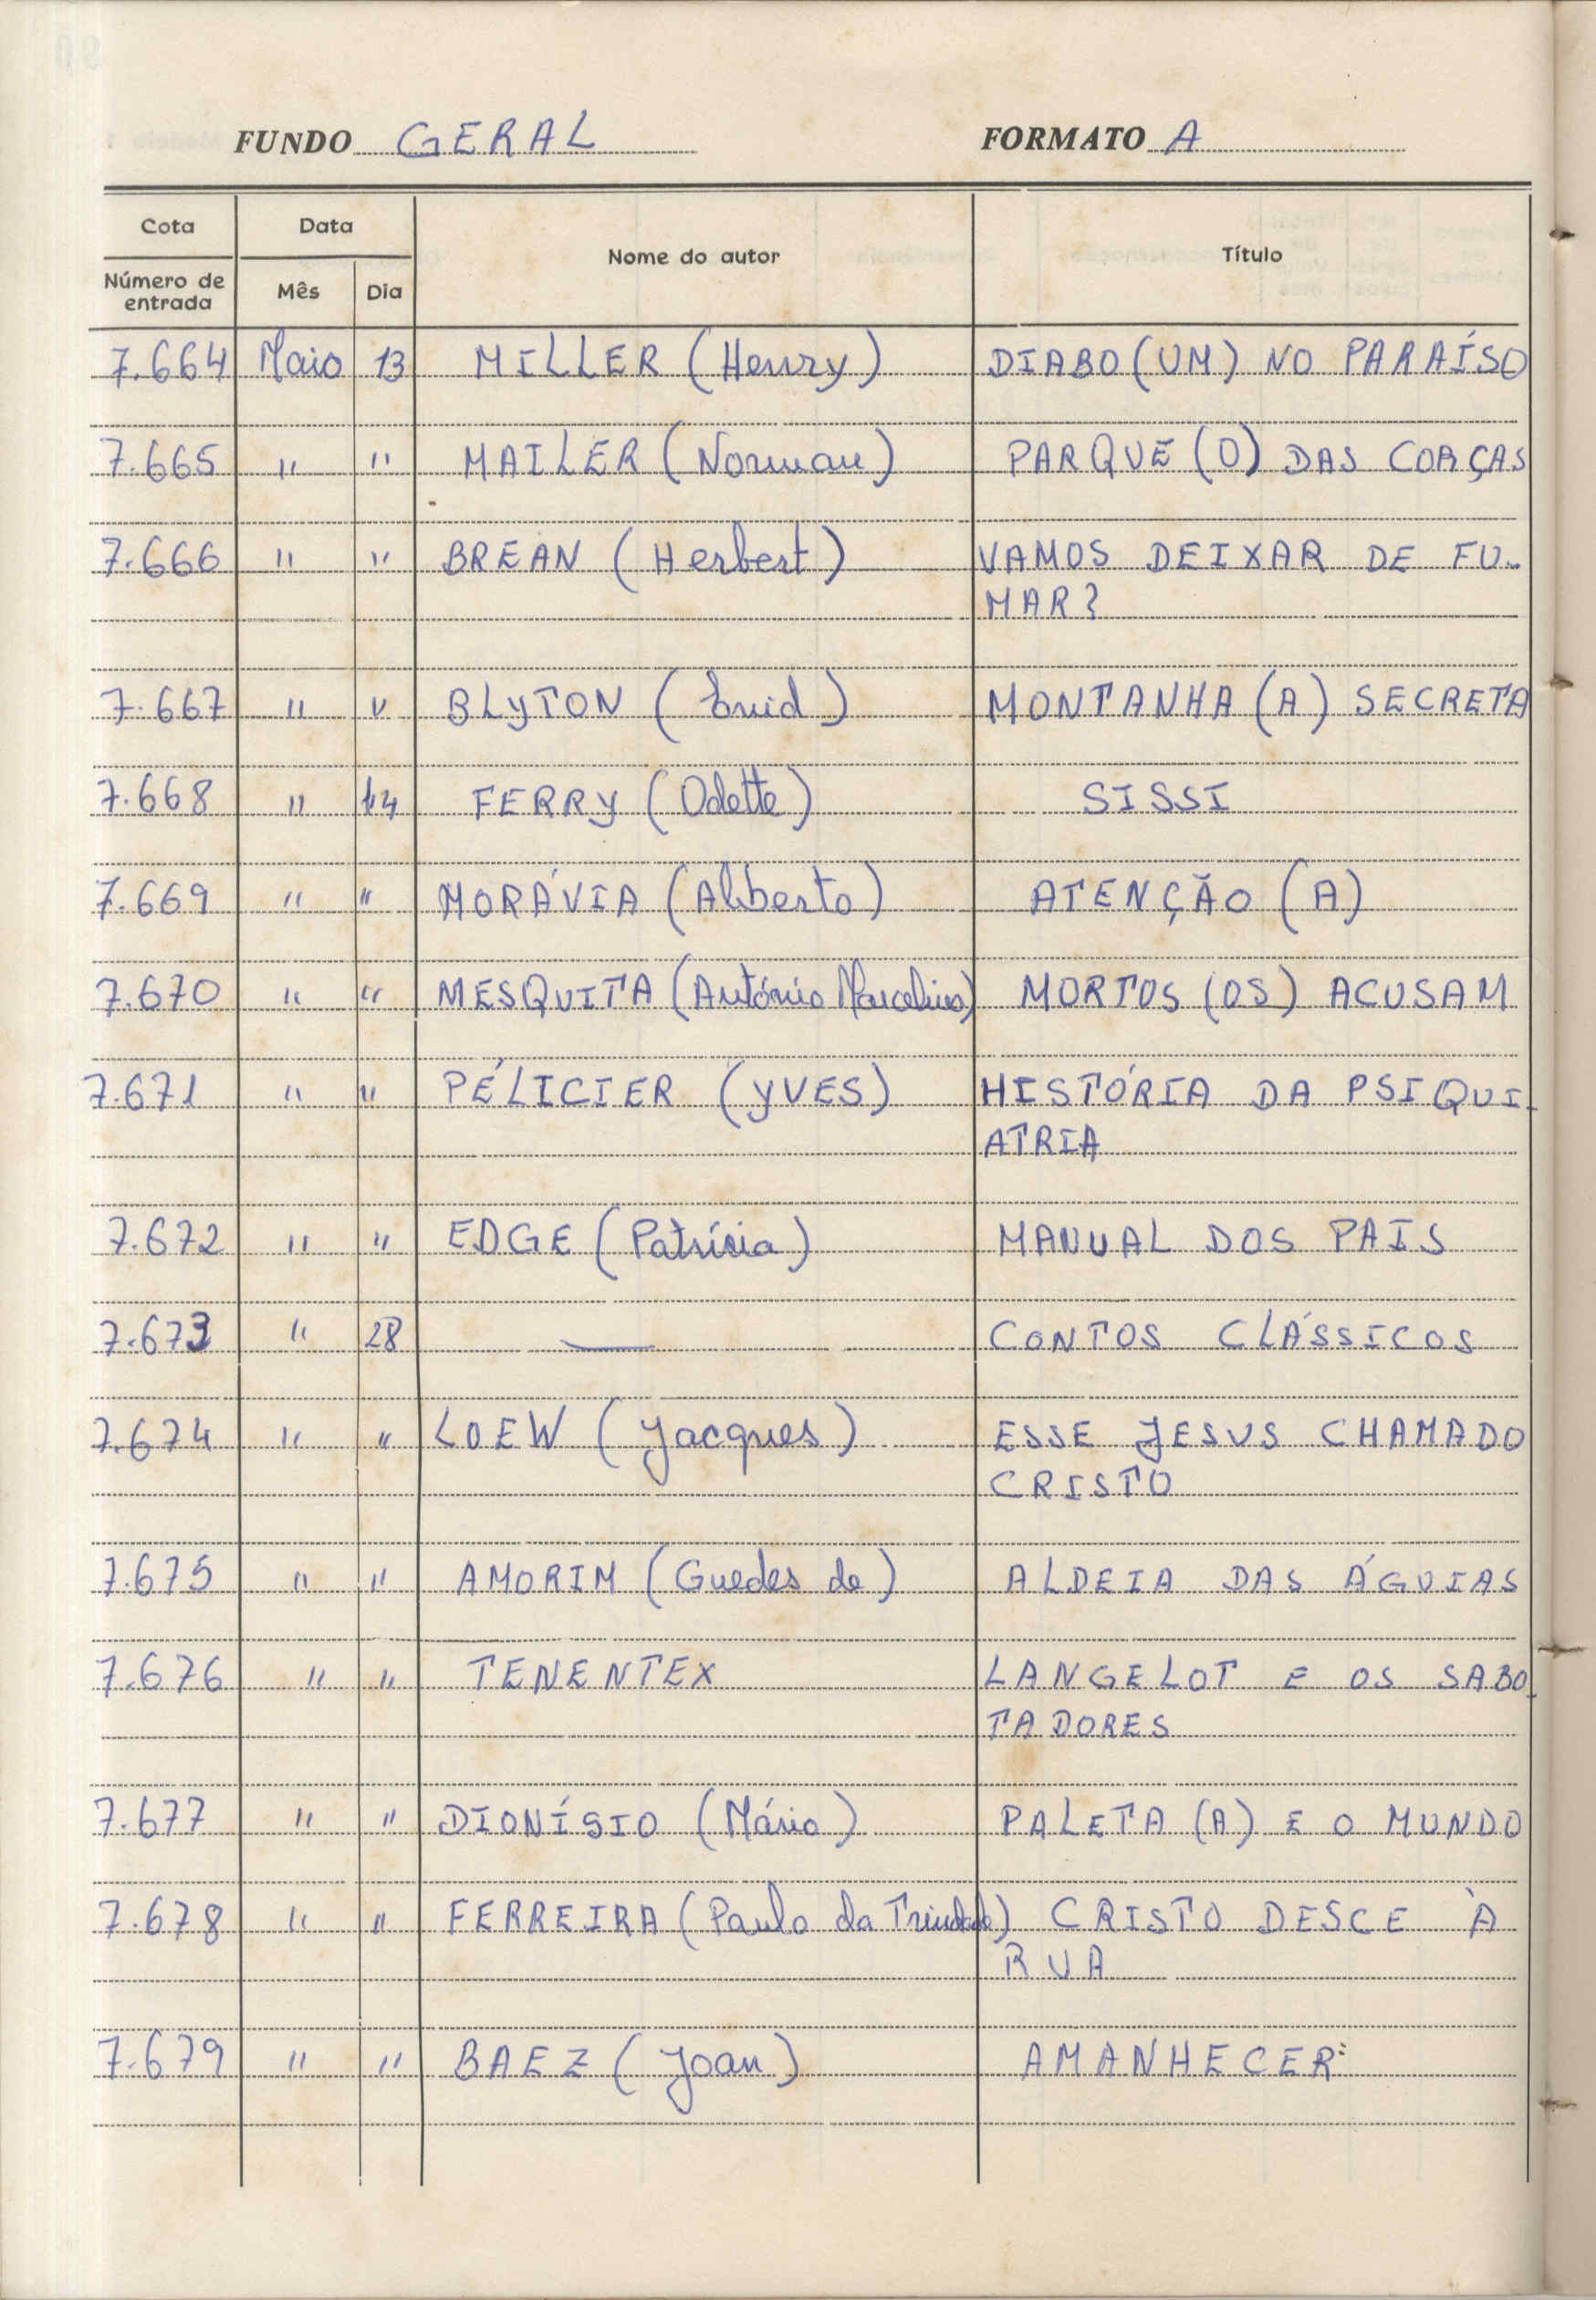 FUNDO GERAL FORMATO A
Cota Data Nome do autor Título
Número de entrada Mês Dia
7.664 Maio 13 MILLER (Henry) DIABO (UM) NO PARAÍSO
7.665 " " MAILER (Norman) PARQUE (O) DAS CORÇAS
7.666 " " BREAN (Herbert) VAMOS DEIXAR DE FU-
MAR?
7.667 " " BLYTON (Enid) MONTANHA (A) SECRETA
7.668 " 14 FERRY (Odette) SISSI
7.669 " " MORÁVIA (Alberto) ATENÇÃO (A)
7.670 " " MESQUITA (António Marcelino) MORTOS (OS) ACUSAM
7.671 " " PÉLICIER (YVES) HISTÓRIA DA PSIQUI-
ATRIA
7.672 " " EDGE (Patrícia) MANUAL DOS PAIS
7.673 " 28 — CONTOS CLÁSSICOS
7.674 " " LOEW (Jacques) ESSE JESUS CHAMADO
CRISTO
7.675 " " AMORIM (Guedes de) ALDEIA DAS ÁGUIAS
7.676 " " TENENTEX LANGELOT E OS SABO-
TADORES
7.677 " " DIONÍSIO (Mário) PALETA (A) E O MUNDO
7.678 " " FERREIRA (Paulo da Trindade) CRISTO DESCE À
RUA
7.679 " " BAEZ (Joan) AMANHECER